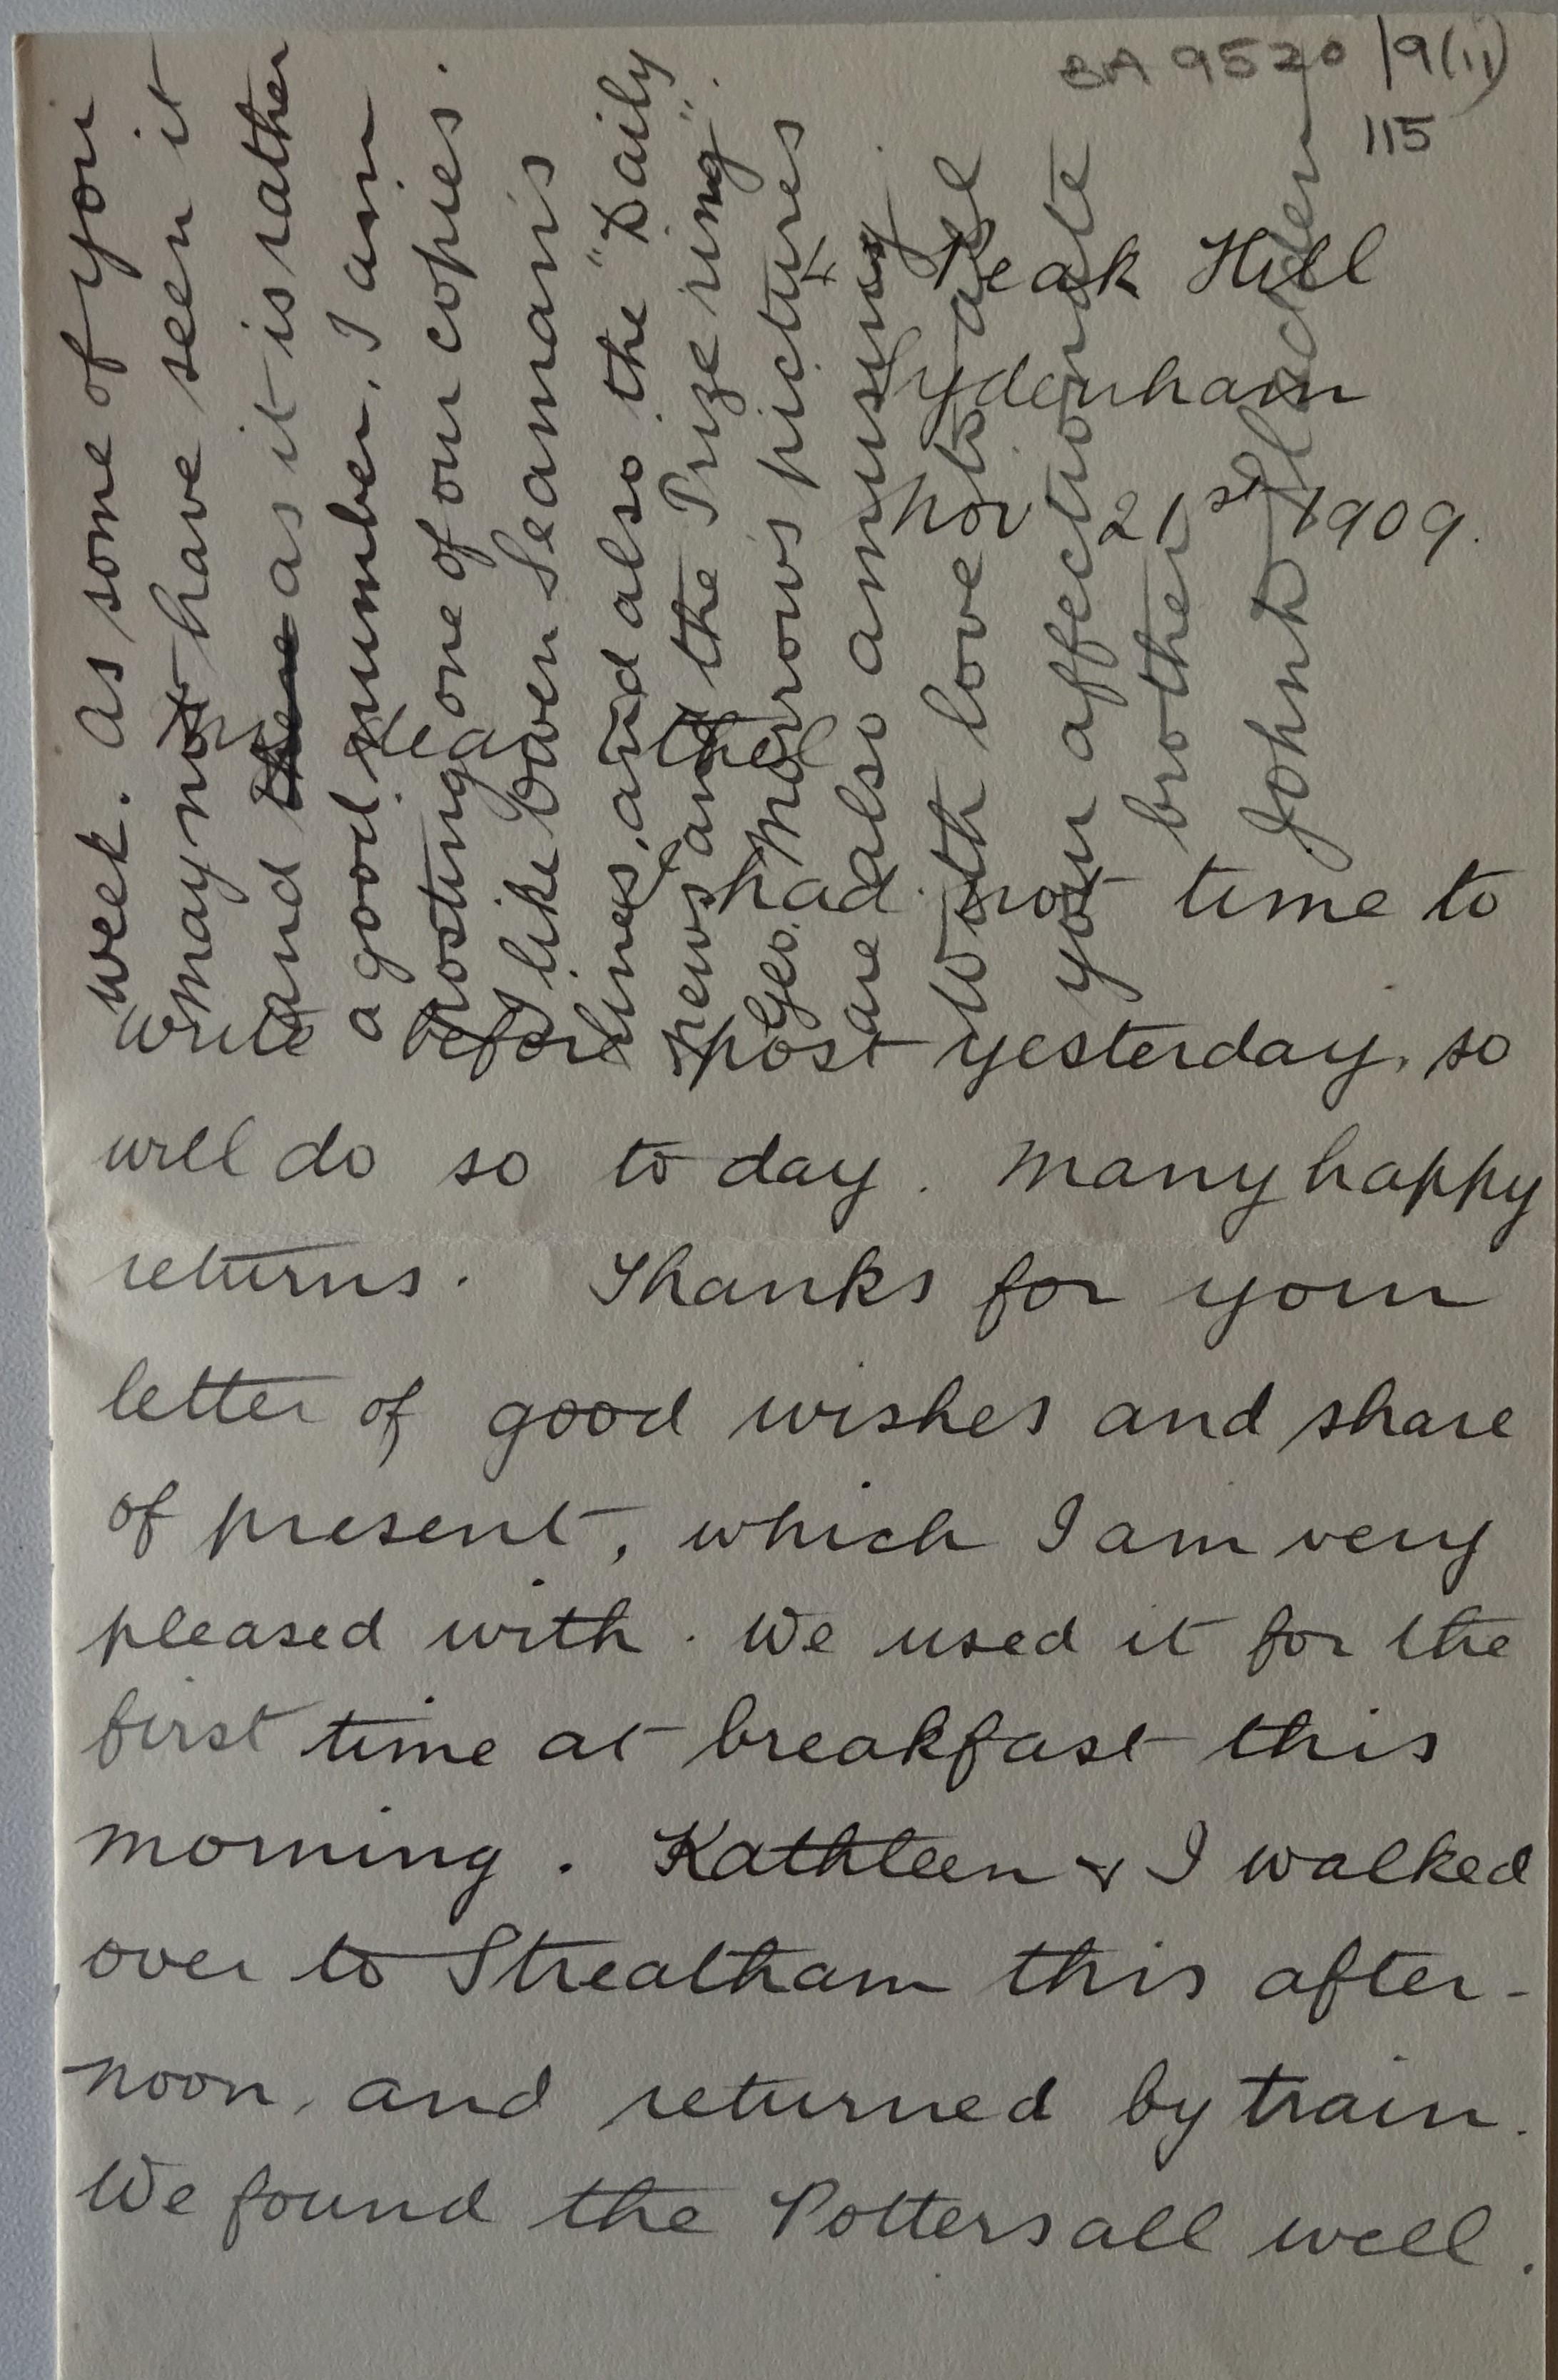 BA 9520/9(ii)
115
4 Peak Hill
Sydenham
Nov 21st 1909.
My dear Ethel
I had not time to
write before post yesterday, so
will do so to day. Many happy
returns. Thanks for your
letter of good wishes and share
of present, which I am very
pleased with. We used it for the
first time at breakfast this
morning. Kathleen & I walked
over to Streatham this after-
noon, and returned by train.
We found the Potters all well.
week. As some of you
may not have seen it
and as it is rather
a good number, I am
posting one of our copies.
I like Owen Seaman's
lines, and also the "Daily
news and the Prize ring".
Geo. Morrows pictures
are also amusing.
With love to all
your affectionate
brother
John